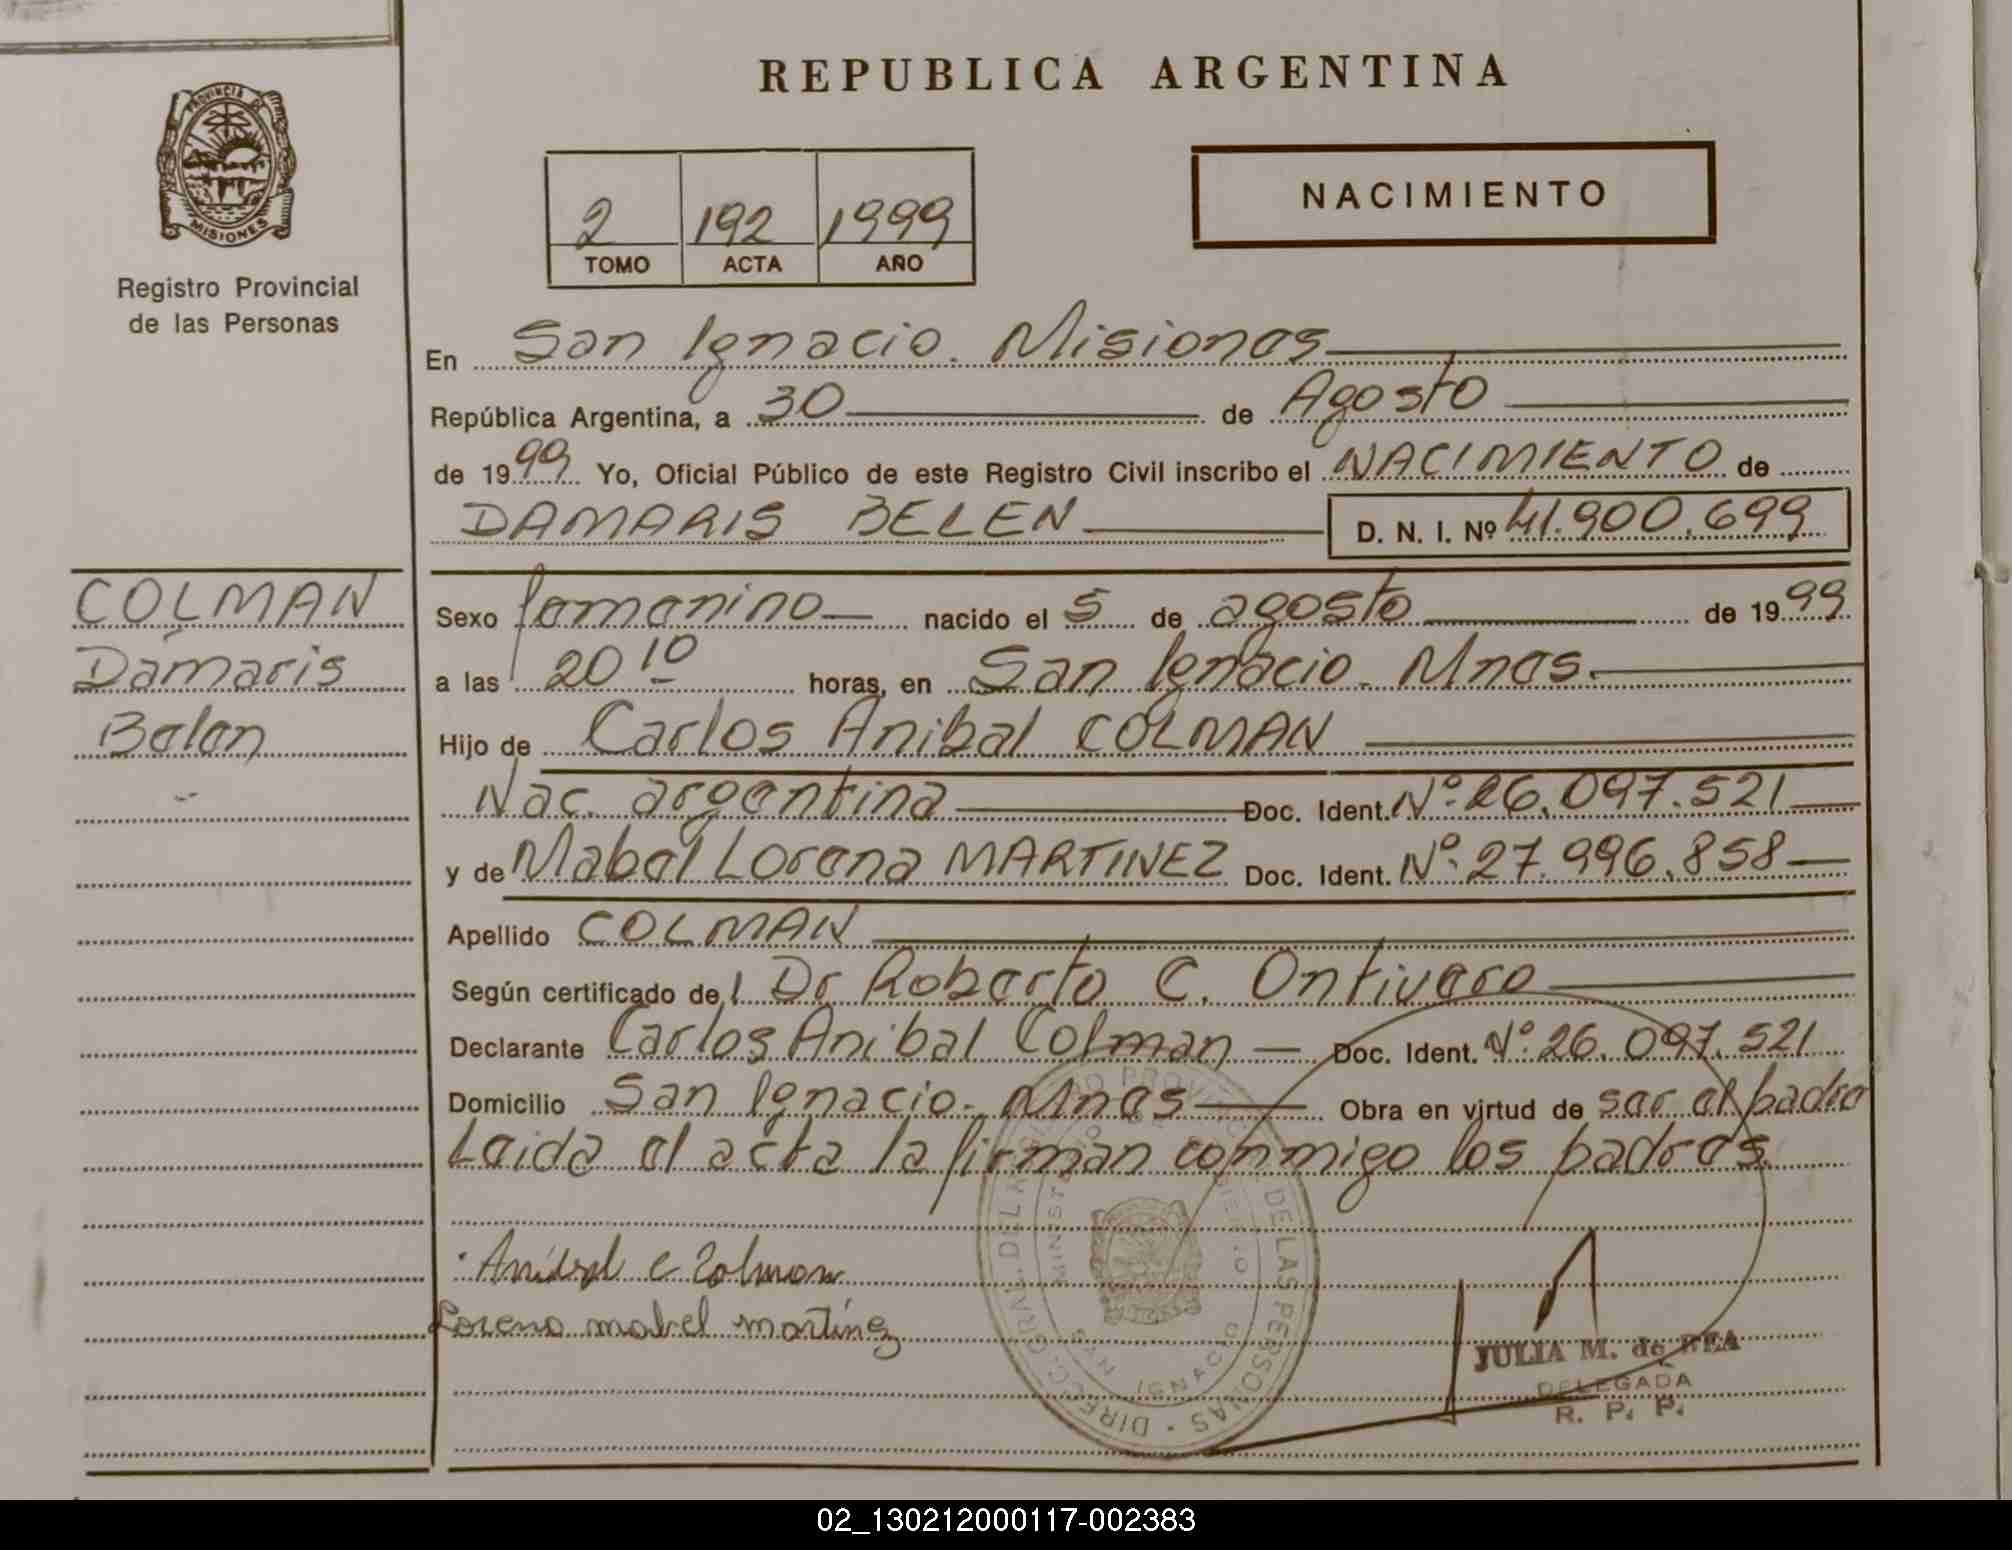 REPUBLICA ARGENTINA
PROVINCIA DE
MISIONES
Registro Provincial
de las Personas
2 192 1999
TOMO ACTA AÑO
NACIMIENTO
En San Ignacio. Misiones
República Argentina, a 30 de Agosto
de 1999 Yo, Oficial Público de este Registro Civil inscribo el NACIMIENTO de
DAMARIS BELEN D. N. I. Nº 41.900.699
COLMAN
Damaris
Belen
Sexo femenino nacido el 5 de agosto de 1999
a las 20 10 horas, en San Ignacio. Mnes.
Hijo de Carlos Anibal COLMAN
Nac. argentina Doc. Ident. Nº 26.097.521
y de Mabel Lorena MARTINEZ Doc. Ident. Nº 27.996.858
Apellido COLMAN
Según certificado del Dr Roberto C. Ontivero
Declarante Carlos Anibal Colman Doc. Ident. Nº 26.097.521
Domicilio San Ignacio. Mnes Obra en virtud de ser el padre
Leida el acta la firman conmigo los padres.
Anibal C Colman
Lorena mabel martinez
DIREC. GRAL. DEL REGISTRO PROVINCIAL DE LAS PERSONAS
MINISTERIO DE GOBIERNO
SAN IGNACIO
JULIA M. de REA
DELEGADA
R. P. P.
02_130212000117-002383